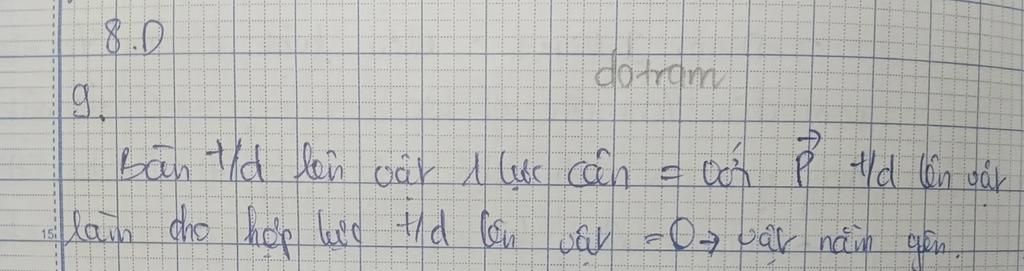 8.D
dotram
9.
Bàn t/d lên vật 1 lực cân = với P⃗ t/d lên vật
làm cho hợp lực t/d lên vật = 0 → vật nằm yên.
15